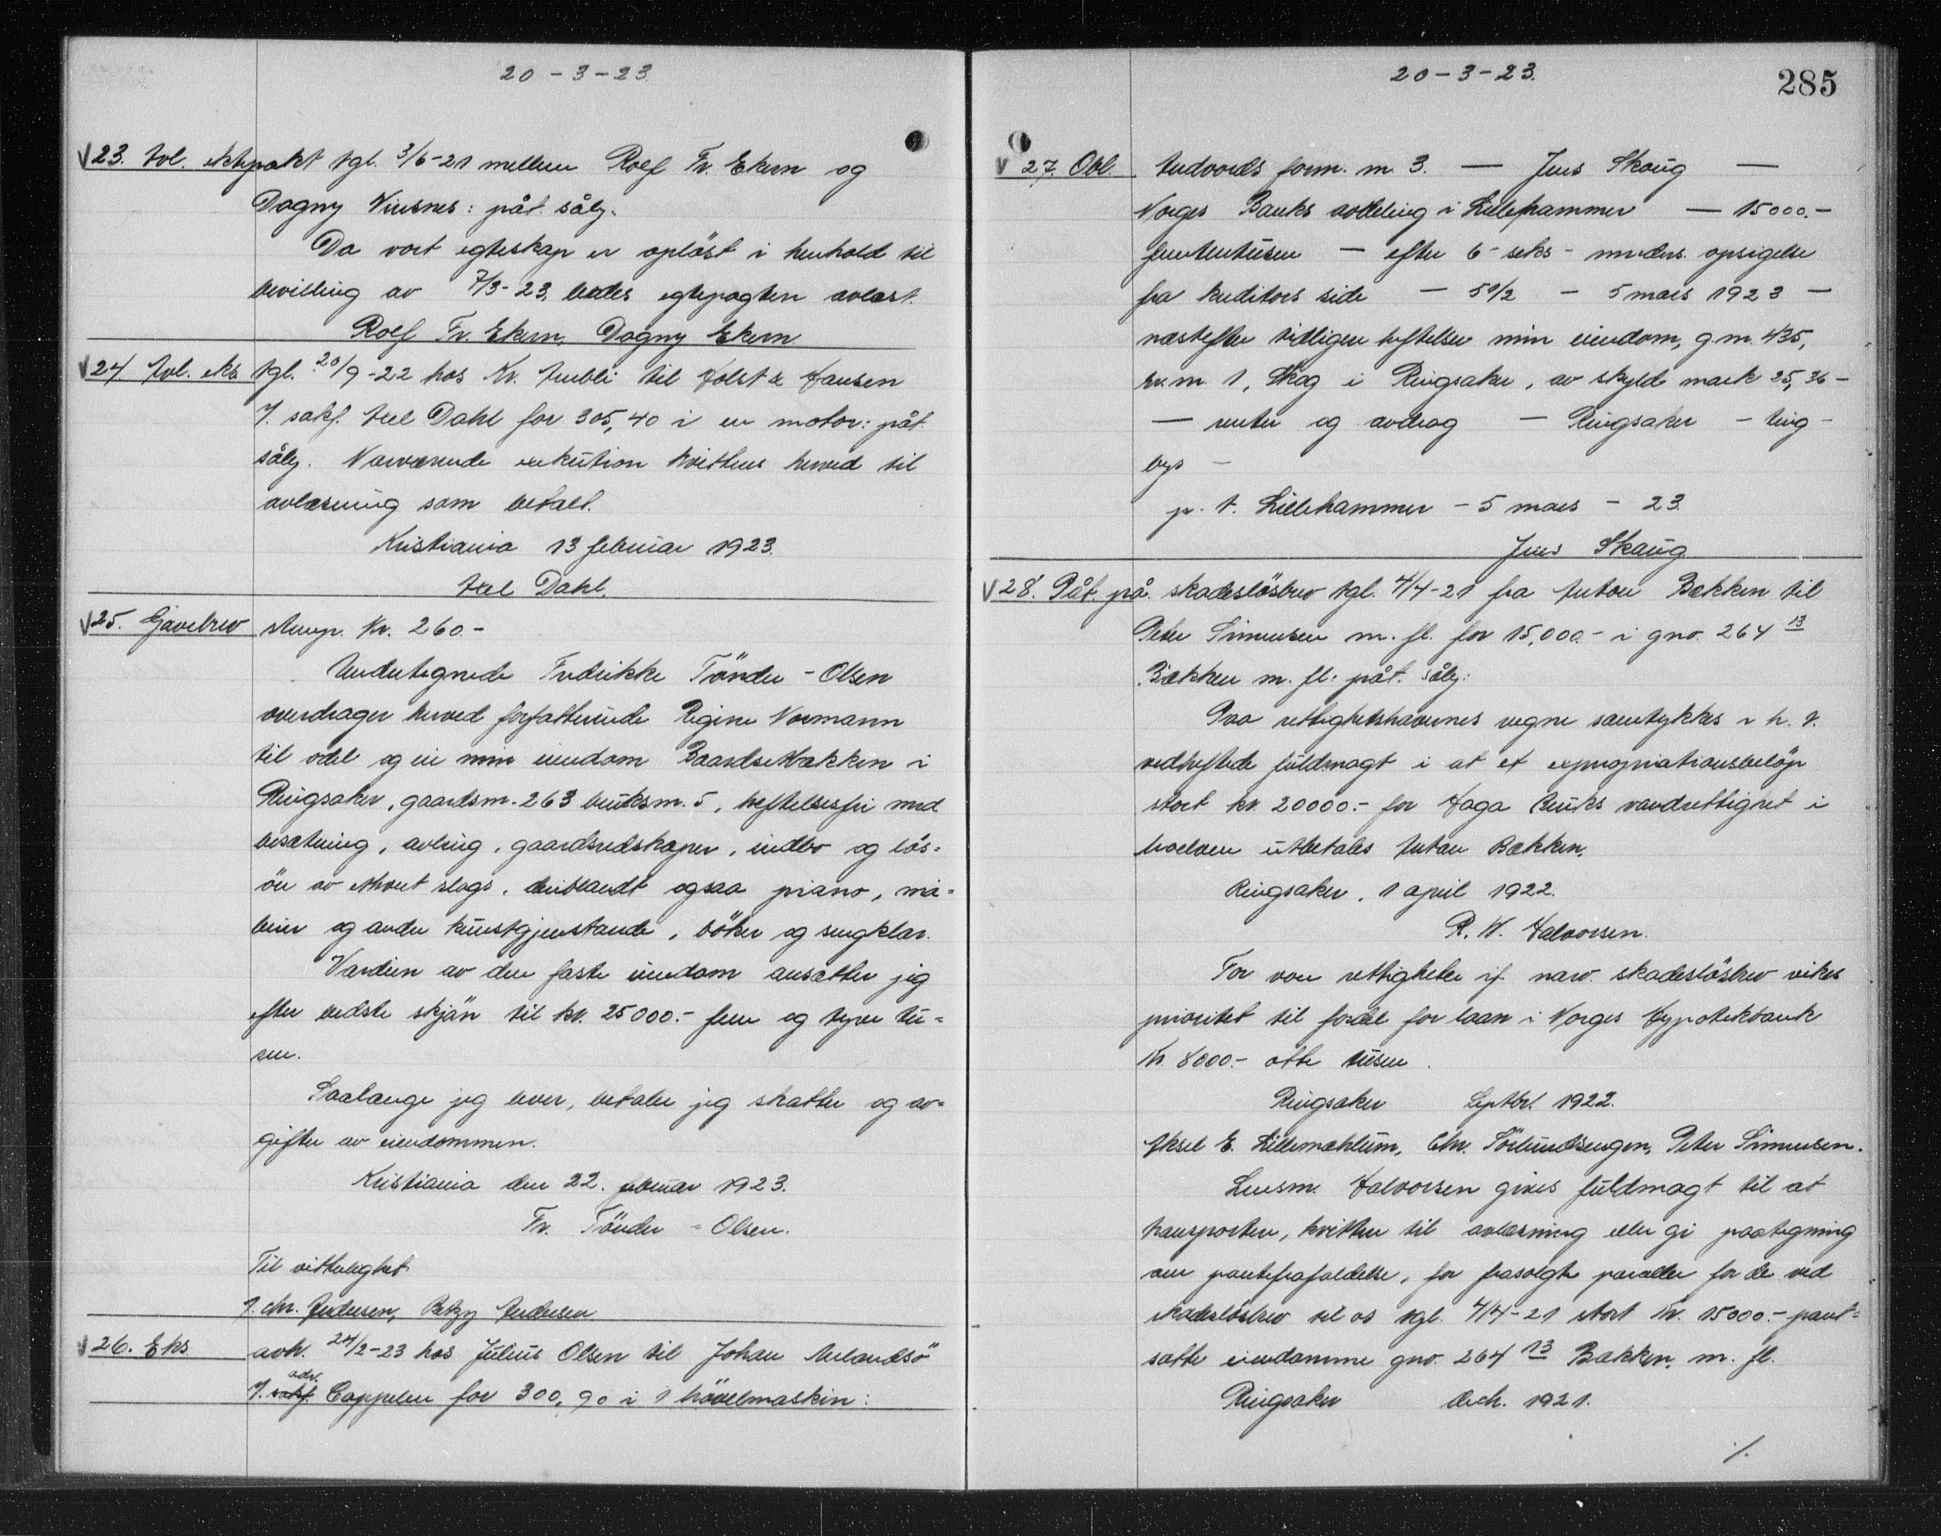 20-3-23.
23. Avl. ektepakt tgl. 3/6-21 mellem Rolf Fr. Ekern og
Dagny Vinsnes: påt. sålg.
Da vort egteskap er opløst i henhold til
bevilling av 7/3-23, bedes egtepagten avlæst.
Rolf Fr. Ekern, Dagny Ekern
24. Avl. eks. tgl. 20/9-22 hos Kr. til Holst & Hansen
v. sakf. Axel Dahl for 305,40 i en motor: påt.
sålg. Nærværende exekution kvitteres herved til
avlæsning som betalt.
Kristiania 13 februar 1923.
Axel Dahl.
25. Gavebrev stemp. kr. 260.-
Undertegnede Fredrikke Tönder-Olsen
overdrager herved forfatterinde Regine Normann
til odel og eie min eiendom Baardsethbakken i
Ringsaker, gaardsnr. 263 bruksnr. 5, heftelsesfri med
besætning, avling, gaardsredskaper, indbo og løs=
øre av ethvert slags, deriblandt ogsaa piano, ma=
lerier og andre kunstgjenstande, böker og sengklær.
Værdien av den faste eiendom ansætter jeg
efter bedste skjøn til kr. 25000.- fem og tyve tu=
sen.
Saalænge jeg lever, betaler jeg skatter og av=
gifter av eiendommen.
Kristiania den 22. februar 1923.
Fr. Tönder-Olsen.
Til vitterlighet
J. Chr. Andersen, Betzy Andersen
26. Eks. avh. 24/2-23 hos Julius Olsen til Johan
v. sakf. adv. Cappelen for 300,90 i 1 hövelmaskin:
20-3-23.
285
27. Obl. Andvords form. nr. 3. — Jens Skaug —
Norges Banks avdeling i Lillehammer — 15000.-
femtentusen — efter 6 - seks - mndrs. opsigelse
fra kreditors side — 5 1/2 — 5 mars 1923 —
næstefter tidligere heftelser min eiendom, g.nr. 435,
br.nr. 1, Skog i Ringsaker, av skyld mark 25,36 —
— renter og avdrag — Ringsaker - ting-
bys —
p. t. Lillehammer - 5 mars - 23.
Jens Skaug
28. Påt. på skadesløsbrev tgl. 4/4-21 fra Anton Bækken til
Peter Simensen m. fl. for 15,000.- i gno. 264 13
Bækken m. fl. påt. sålg:
Paa rettighetshavernes vegne samtykkes i h. t.
vedheftede fuldmagt i at et expropriationsbeløp
stort kr. 20000.- for Haga Bruks vandrettighet i
Moelven utbetales Anton Bækken.
Ringsaker, 1 april 1922.
R. W. Halvorsen.
For vore rettigheter if. nærv. skadesløsbrev vikes
prioritet til fordel for laan i Norges Hypotekbank
Kr. 8000.- otte tusen.
Ringsaker Septbr. 1922.
Aksel E. Lillemæhlum, Chr. Sörlundsengen, Peter Simensen.
Lensm. Halvorsen gives fuldmagt til at
transportere, kvittere til avlæsning eller gi paategning
om pantefrafaldelse, for frasolgte parceller for de ved
skadesløsbrev til os tgl. 4/4-21 stort kr. 15000.- pant=
satte eiendomme gno. 264 13 Bækken, m. fl.
Ringsaker decbr. 1921.
./.